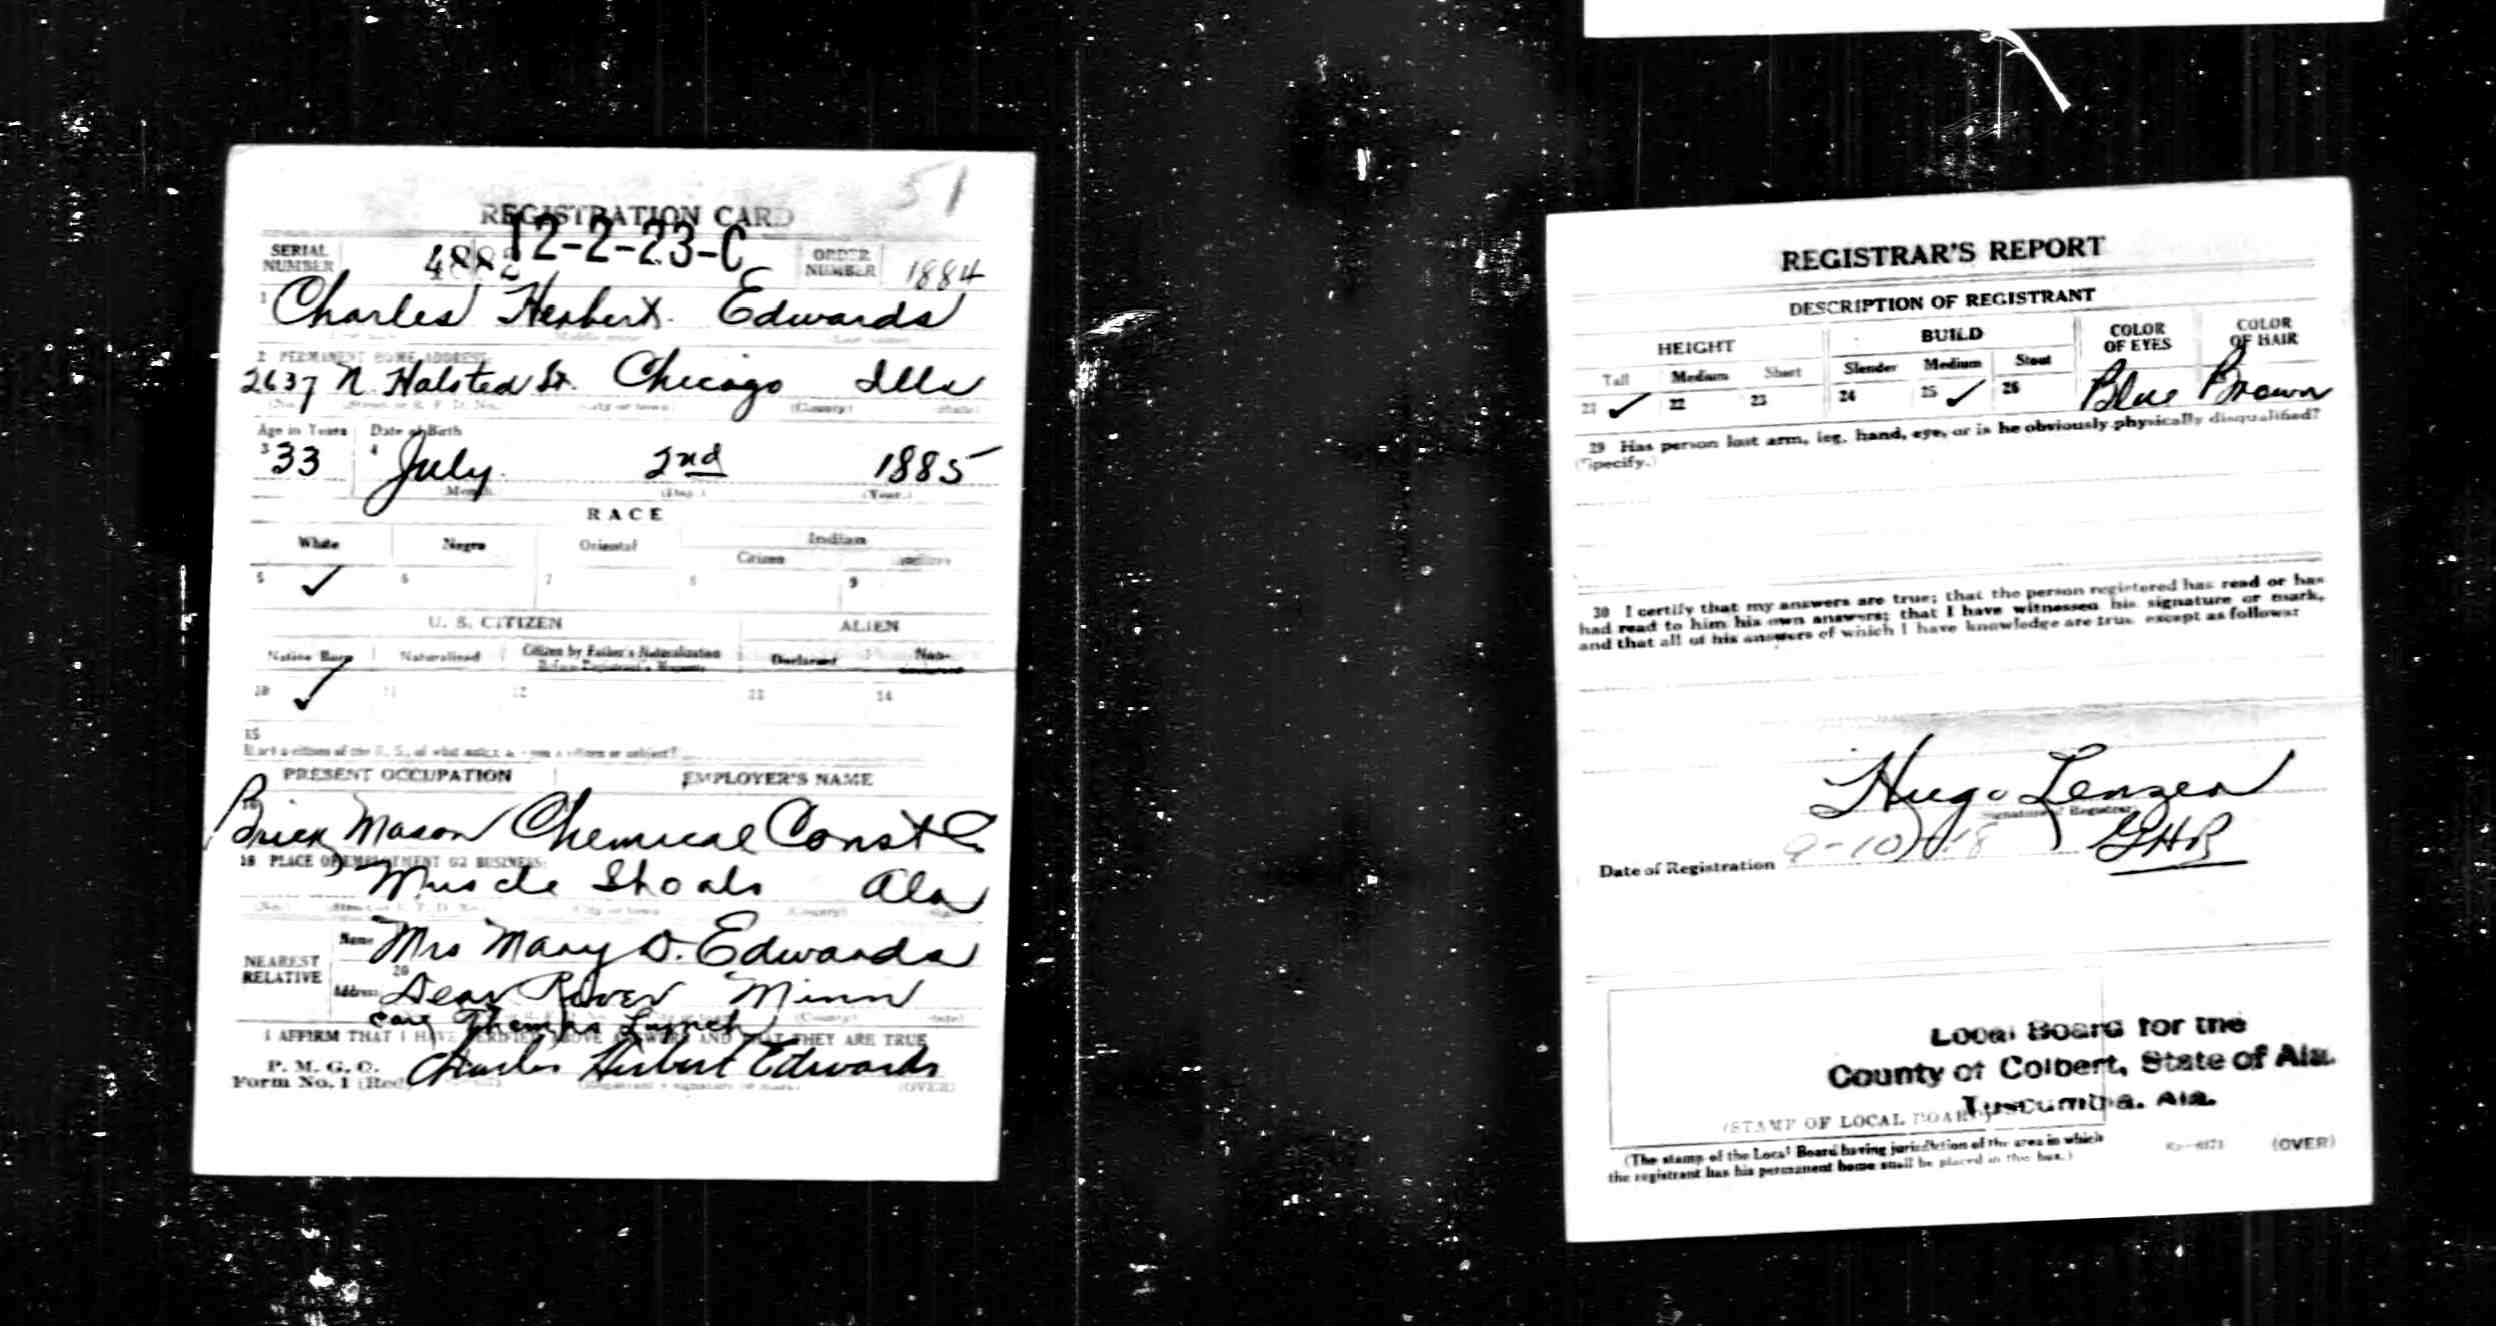 51
REGISTRATION CARD
12-2-23-C
SERIAL NUMBER 488 ORDER NUMBER 1884
1 Charles Herbert Edwards
(Last name)
2 PERMANENT HOME ADDRESS:
2637 N. Halsted St. Chicago Ills
(No.) (Street or R. F. D. No.) (City or town) (County) (State)
Age in Years Date of Birth
3 33 4 July 2nd 1885
(Month.) (Day.) (Year.)
RACE
White Negro Oriental Indian
Citizen
5 ✓ 6 7 8 9
U. S. CITIZEN ALIEN
Native Born Naturalized Citizen by Father's Naturalization Before Registrant's Majority Declarant Non-declarant
10 ✓ 11 12 13 14
15
If not a citizen of the U. S., of what nation are you a citizen or subject?
PRESENT OCCUPATION EMPLOYER'S NAME
16 Brick Mason Chemical Const Co
18 PLACE OF EMPLOYMENT OR BUSINESS:
Muscle Shoals Ala
(No.) (Street or R. F. D. No.) (City or town) (County) (State)
NEAREST RELATIVE Name Mrs Mary D. Edwards
20 Address Dear River Minn
(County) (State)
care Thomas Lynch
I AFFIRM THAT I HAVE VERIFIED ABOVE ANSWERS AND THAT THEY ARE TRUE
P. M. G. O.
Form No. 1 (Red) Charles Herbert Edwards
(Registrant's signature or mark) (OVER)
REGISTRAR'S REPORT
DESCRIPTION OF REGISTRANT
HEIGHT BUILD COLOR OF EYES COLOR OF HAIR
Tall Medium Short Slender Medium Stout
21 ✓ 22 23 24 25 ✓ 26 Blue Brown
29 Has person lost arm, leg, hand, eye, or is he obviously physically disqualified?
(Specify.)
30 I certify that my answers are true; that the person registered has read or has
had read to him his own answers; that I have witnessed his signature or mark,
and that all of his answers of which I have knowledge are true, except as follows:
Hugo Lenzen
(Signature of Registrar)
GHR
Date of Registration 9-10-18
Local Board for the
County of Colbert, State of Ala.
Tuscumbia, Ala.
(STAMP OF LOCAL BOARD)
(The stamp of the Local Board having jurisdiction of the area in which
the registrant has his permanent home shall be placed in this box.)
(OVER)